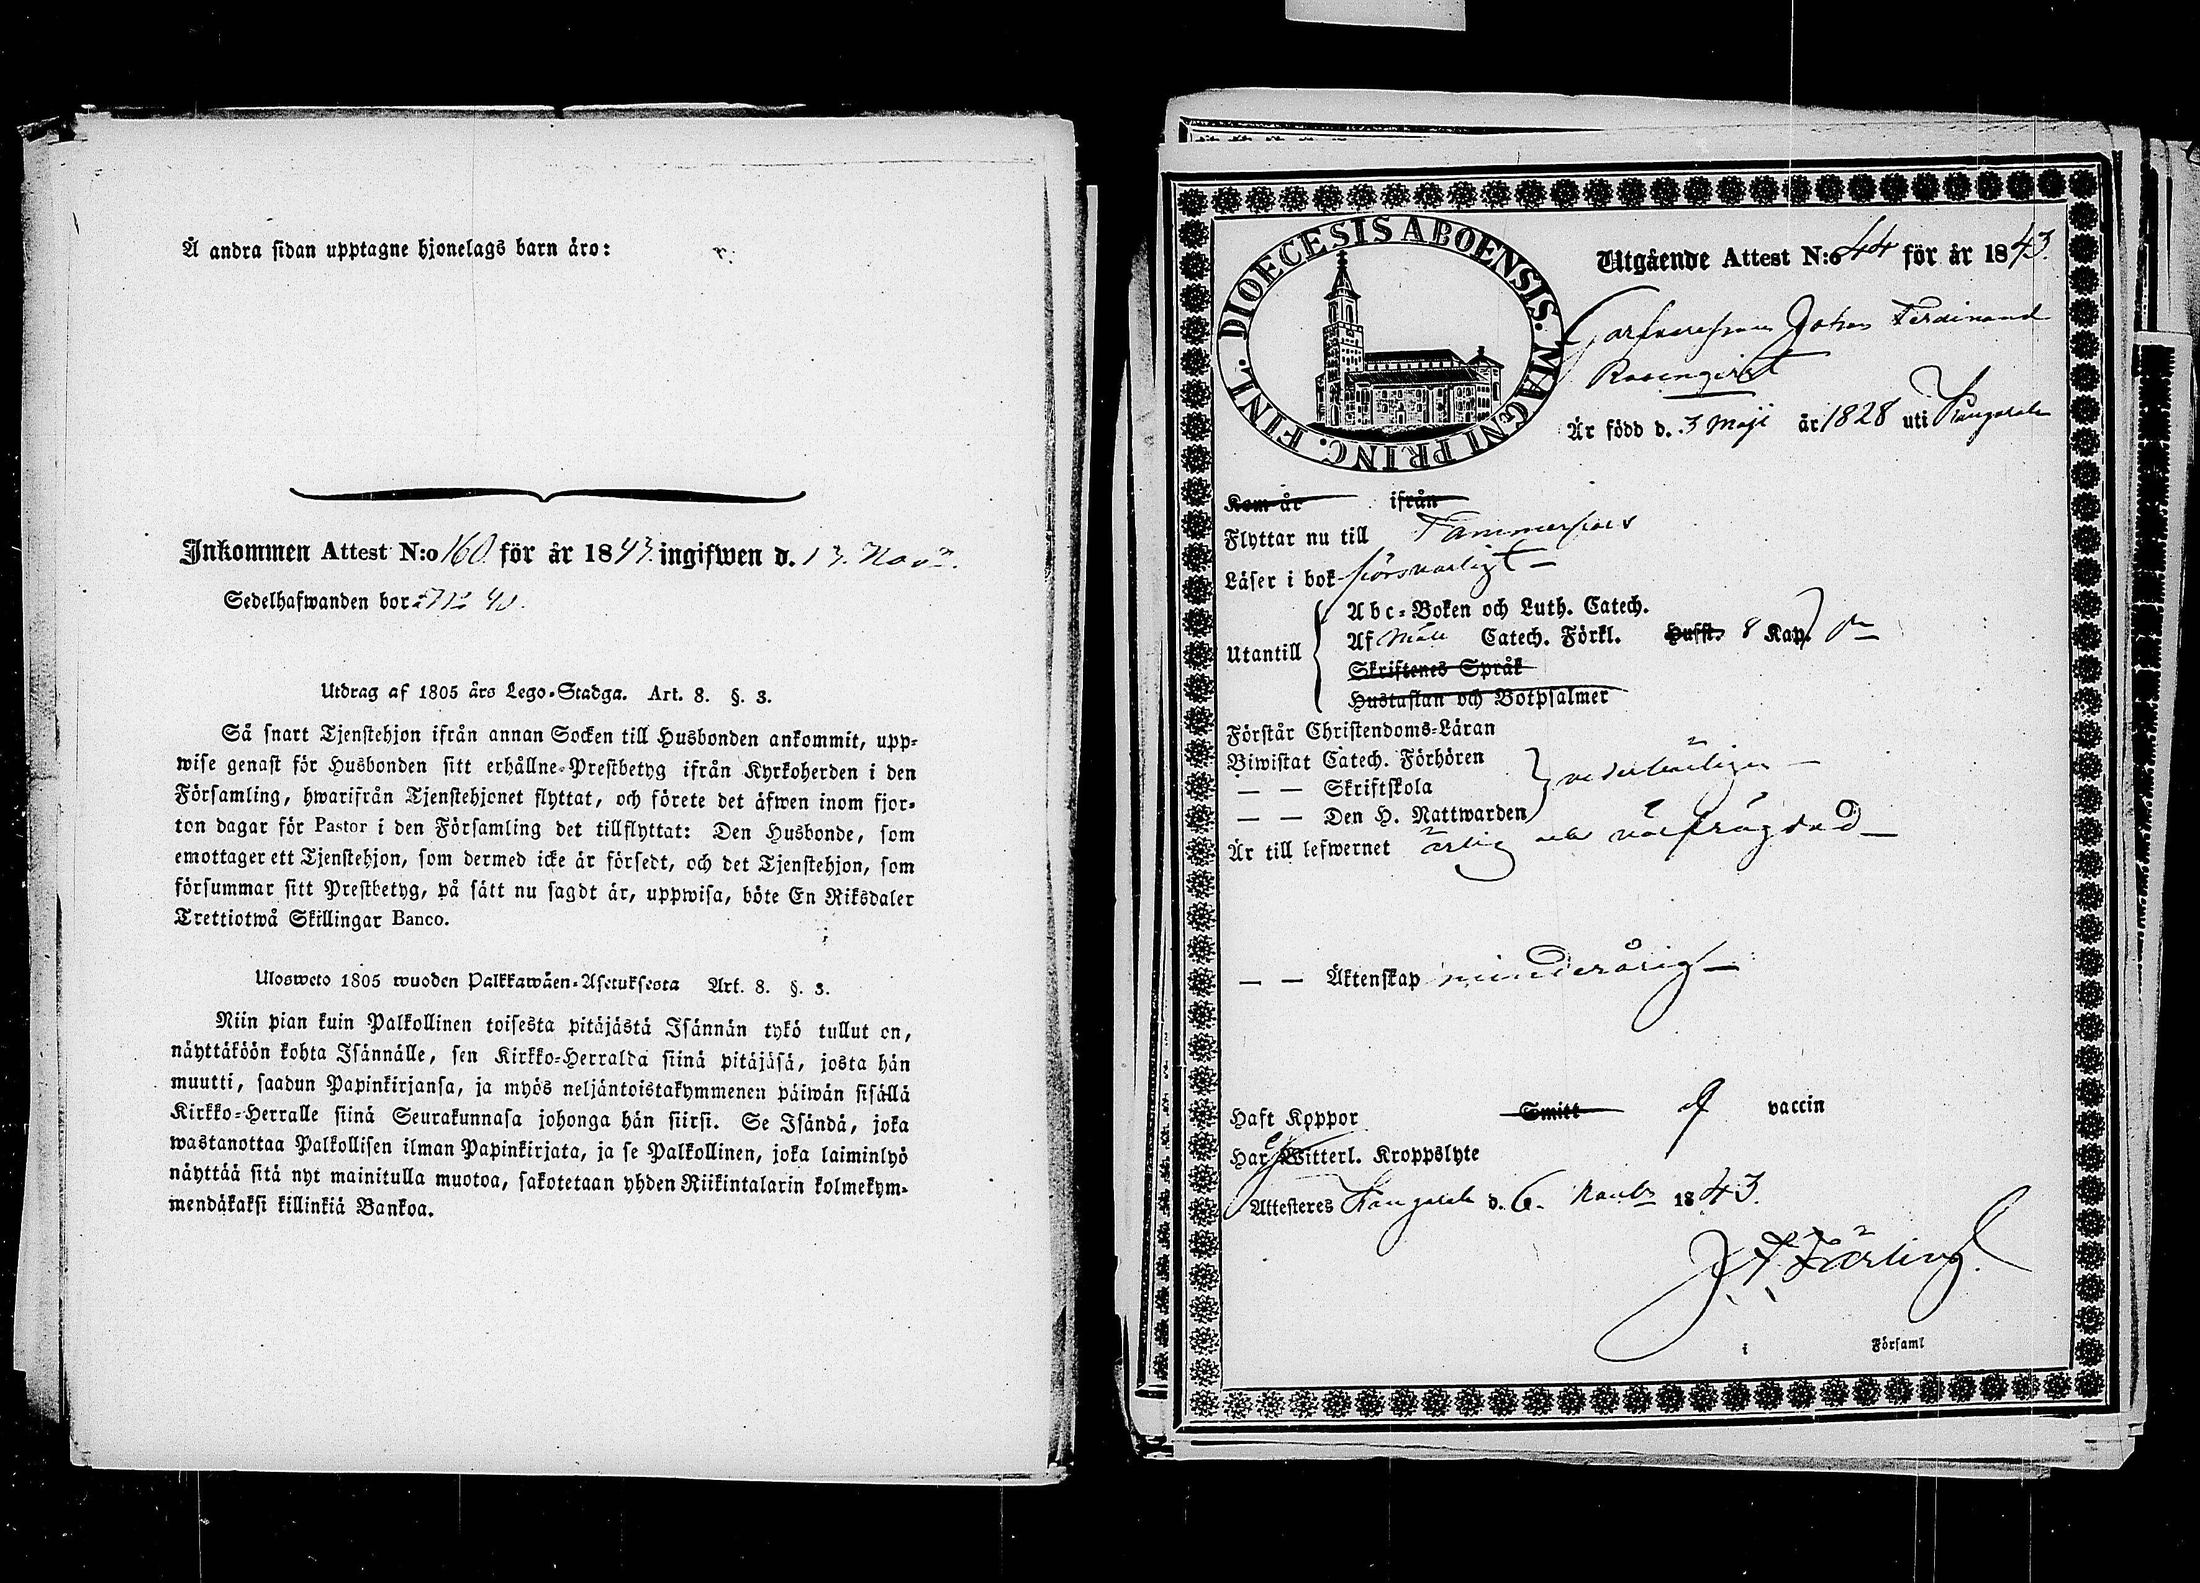 Å andra sidan upptagne hjonelags barn äro:
Inkommen Attest N:o 160 för år 1843 ingifwen d. 13. Nov.
Sedelhafwanden bor
Utdrag af 1805 års Lego-Stadga. Art. 8. §. 3.
Så snart Tjenstehjon ifrån annan Socken till Husbonden ankommit, upp-
wise genast för Husbonden sitt erhållne Prestbetyg ifrån Kyrkoherden i den
Församling, hwarifrån Tjenstehjonet flyttat, och förete det äfwen inom fjor-
ton dagar för Pastor i den Församling det tillflyttat: Den Husbonde, som
emottager ett Tjenstehjon, som dermed icke är försedt, och det Tjenstehjon, som
försummar sitt Prestbetyg, på sätt nu sagdt är, uppwisa, böte En Riksdaler
Trettiotwå Skillingar Banco.
Ulosweto 1805 wuoden Palkkawäen-Asetuksesta Art. 8. §. 3.
Niin pian kuin Palkollinen toisesta pitäjästä Isännän tykö tullut on,
näyttäköön kohta Isännälle, sen Kirkko-Herralda siinä pitäjäsä, josta hän
muutti, saadun Papinkirjansa, ja myös neljäntoistakymmenen päiwän sisällä
Kirkko-Herralle siinä Seurakunnasa johonga hän siirsi. Se Isändä, joka
wastanottaa Palkollisen ilman Papinkirjata, ja se Palkollinen, joka laiminlyö
näyttää sitä nyt mainitulla muotoa, sakotetaan yhden Riikintalarin kolmekym-
mendäkaksi killinkiä Bankoa.
DIOECESIS ABOENSIS. MAGNI PRINC. FINL.
Utgående Attest N:o 44 för år 1843.
Johan Ferdinand
Rosenqvist
Är född d. 3 Maji år 1828 uti Kangasala
Kom år ifrån
Flyttar nu till Tammerfors
Läser i bok försvarligt
Utantill
Abc-Boken och Luth. Catech.
Af Catech. Förkl. Hufst. 8 Kap.
Skriftenes Språk
Hustaflan och Botpsalmer
Förstår Christendoms-Läran
Biwistat Catech. Förhören
— — Skriftskola
— — Den H. Nattwarden
vederbörligen
Är till lefwernet ärlig och välfrägdad
— — Äktenskap minderårig
Haft Koppor Smitt af vaccin
Har ej Witterl. Kroppslyte
Attesteres Kangasala d. 6. Novbr 1843.
i Församl